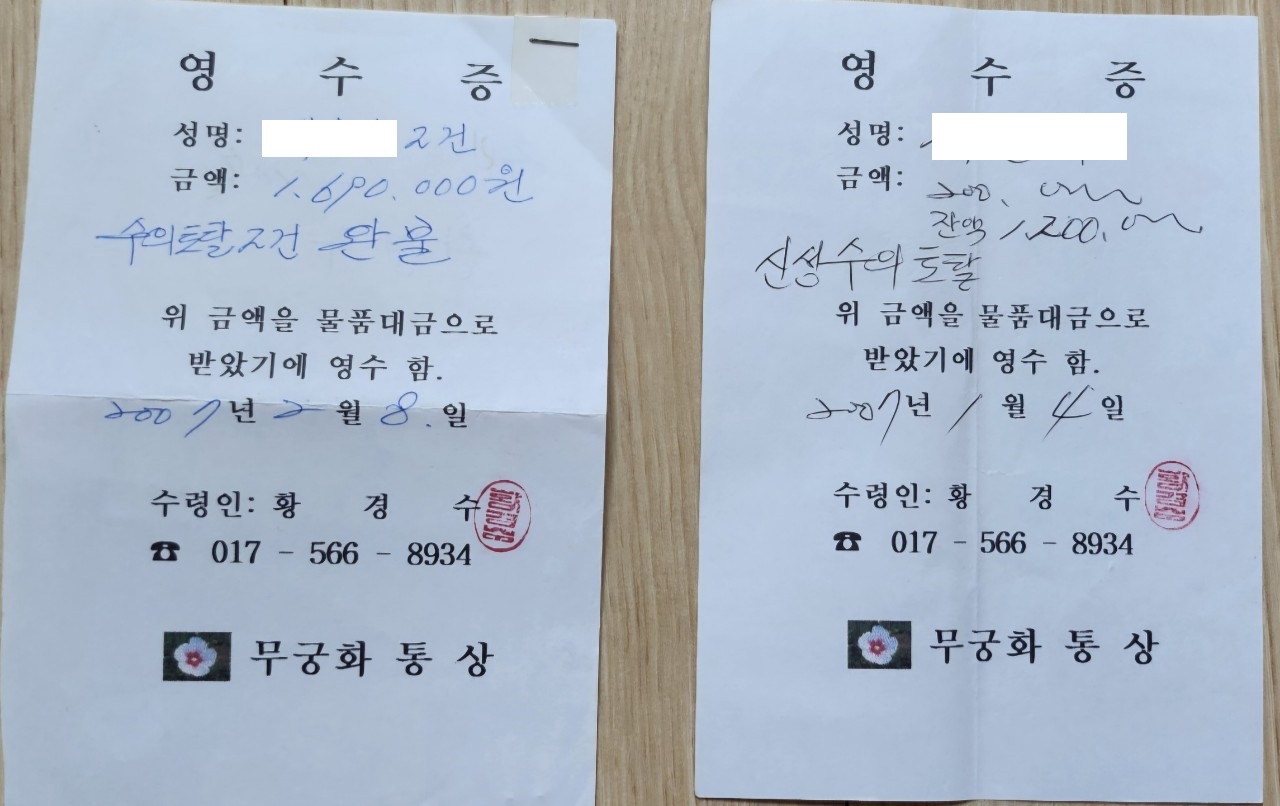 영 수 증
성명: 2건
금액: 1.690.000원
수의토탈 2건 완불
위 금액을 물품대금으로
받았기에 영수 함.
2007년 2월 8.일
수령인: 황 경 수
☎ 017 - 566 - 8934
무궁화 통상
영 수 증
성명:
금액: 200.000
잔액 1,200.000
신쌍수의 토탈
위 금액을 물품대금으로
받았기에 영수 함.
2007년 1월 4일
수령인: 황 경 수
☎ 017 - 566 - 8934
무궁화 통상